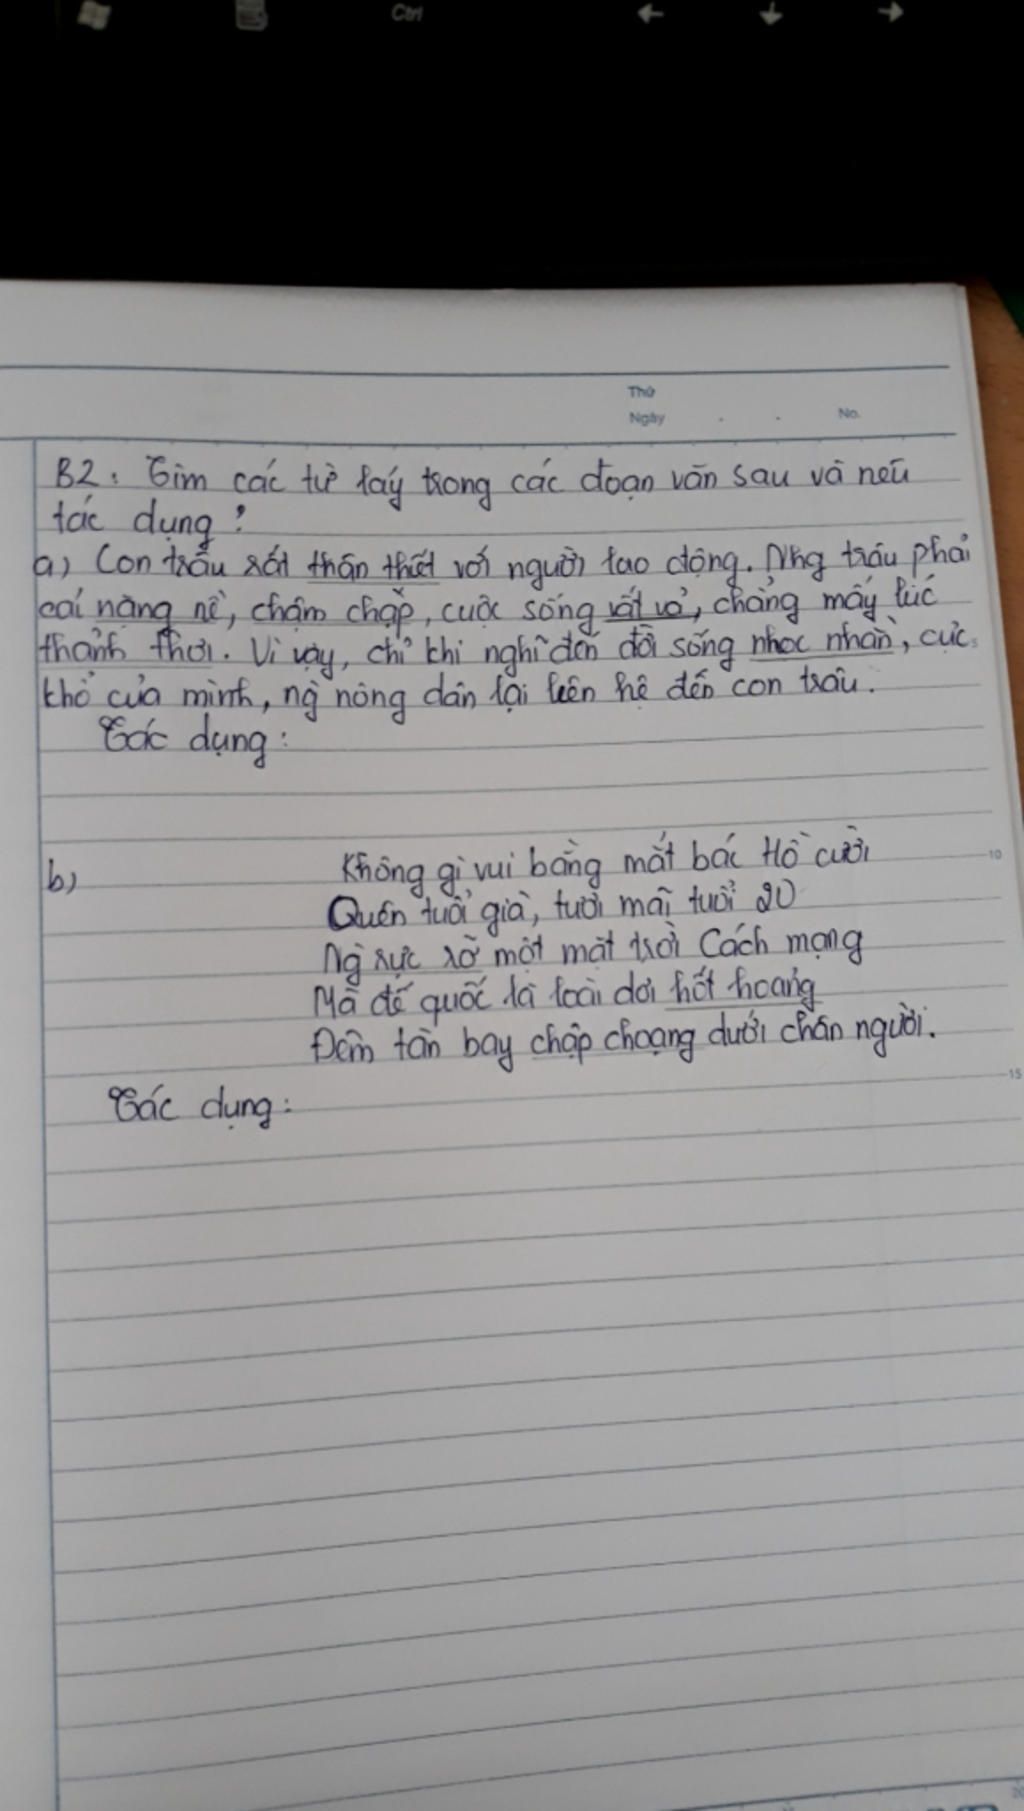 Ctrl ← ↓ →
Thứ
Ngày . . No.
B2: Tìm các từ láy trong các đoạn văn sau và nêu
tác dụng?
a) Con trâu rất thân thiết với người lao động. Nhg trâu phải
cái nặng nề, chậm chạp, cuộc sống vất vả, chẳng mấy lúc
thảnh thơi. Vì vậy, chỉ khi nghĩ đến đời sống nhọc nhằn, cực
khổ của mình, ng` nông dân lại liên hệ đến con trâu.
Tác dụng:
b) Không gì vui bằng mắt bác Hồ cười
10
Quên tuổi già, tươi mãi tuổi 20
Ng` rực rỡ một mặt trời Cách mạng
Mà đế quốc là loài dơi hốt hoảng
Đêm tàn bay chập choạng dưới chân người.
15
Tác dụng: